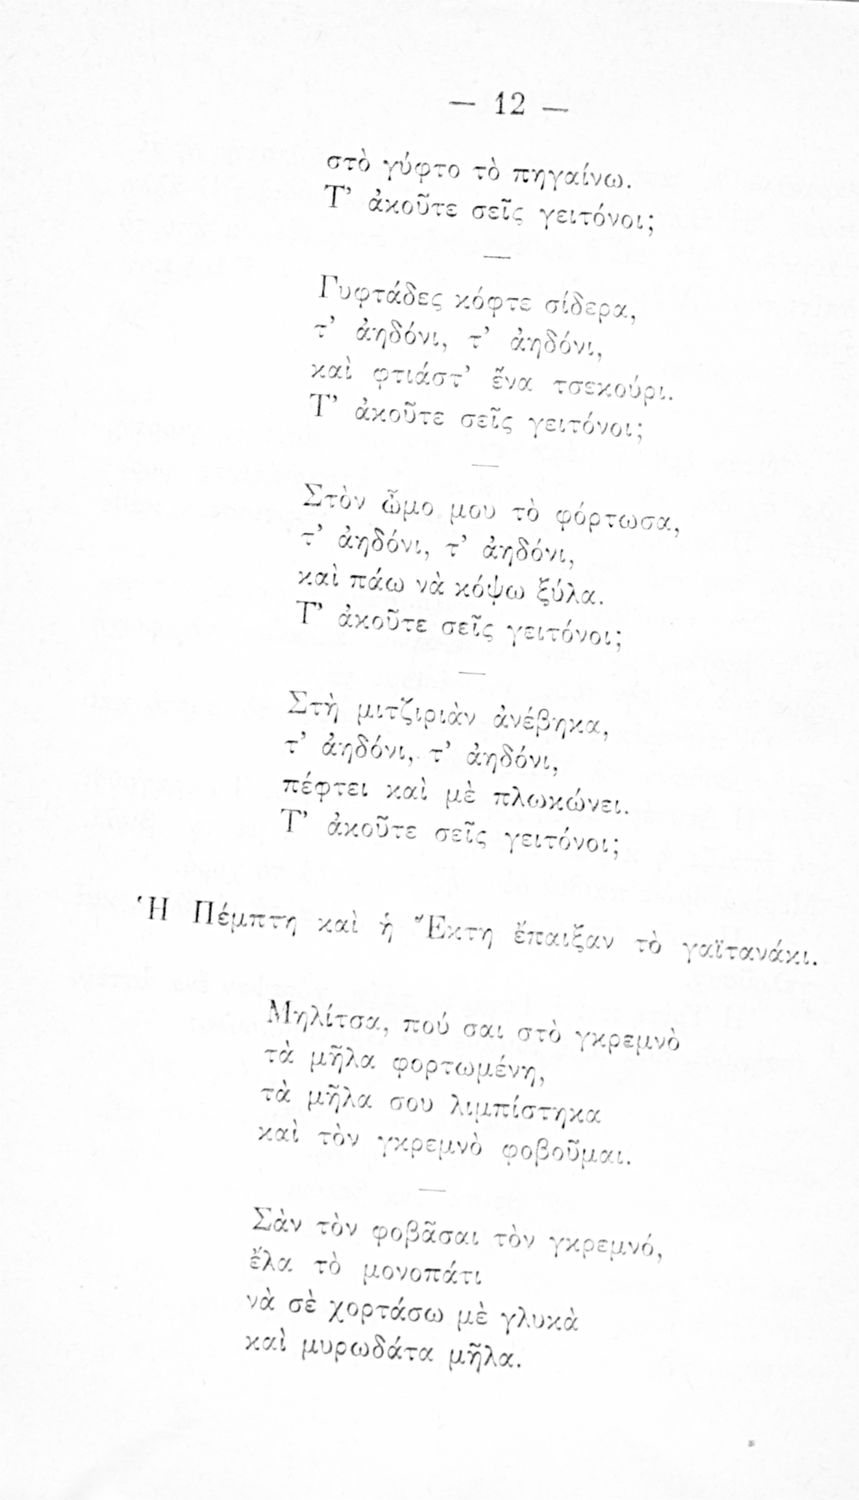 — 12 —
στὸ γύφτο τὸ πηγαίνω.
Τ’ ἀκοῦτε σεῖς γειτόνοι;
Γυφτάδες κόφτε σίδερα,
τ’ ἀηδόνι, τ’ ἀηδόνι,
καὶ φτιάστ’ ἕνα τσεκούρι.
Τ’ ἀκοῦτε σεῖς γειτόνοι;
Στὸν ὦμο μου τὸ φόρτωσα,
τ’ ἀηδόνι, τ’ ἀηδόνι,
καὶ πάω νὰ κόψω ξύλα.
Τ’ ἀκοῦτε σεῖς γειτόνοι;
Στὴ μιτζιριὰν ἀνέβηκα,
τ’ ἀηδόνι, τ’ ἀηδόνι,
πέφτει καὶ μὲ πλωκώνει.
Τ’ ἀκοῦτε σεῖς γειτόνοι;
Ἡ Πέμπτη καὶ ἡ Ἕκτη ἔπαιξαν τὸ γαϊτανάκι.
Μηλίτσα, πού σαι στὸ γκρεμνὸ
τὰ μῆλα φορτωμένη,
τὰ μῆλα σου λιμπίστηκα
καὶ τὸν γκρεμνὸ φοβοῦμαι.
Σὰν τὸν φοβᾶσαι τὸν γκρεμνό,
ἔλα τὸ μονοπάτι
νὰ σὲ χορτάσω μὲ γλυκὰ
καὶ μυρωδάτα μῆλα.